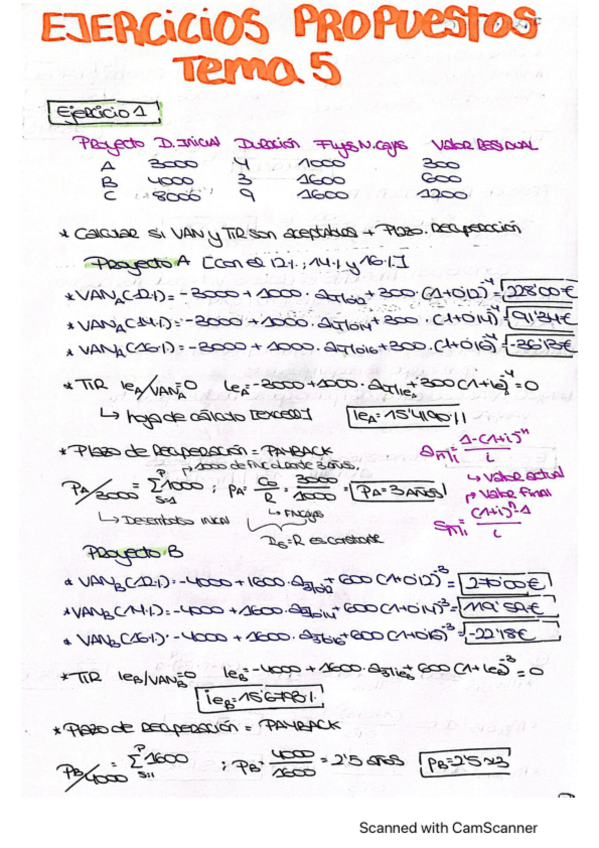 EJERCICIOS PROPUESTOS
Tema 5
Ejercicio 1
Proyecto D.Inicial Duración Flujos N.Cajas Valor RESIDUAL
A 3000 4 1000 300
B 4000 3 1600 600
C 8000 9 1600 1200
* Calcular si VAN y TIR son aceptables + Plazo. Recuperación
Proyecto A [con el 12%; 14% y 16%]
* VAN_A(12%) = -3000 + 1000 · a4̅|0'12 + 300 · (1+0'12)^-4 = 228'00€
* VAN_A(14%) = -3000 + 1000 · a4̅|0'14 + 300 · (1+0'14)^-4 = 91'34€
* VAN_A(16%) = -3000 + 1000 · a4̅|0'16 + 300 · (1+0'16)^-4 = -36'13€
* TIR ie_A/VAN_A=0 ie_A = -3000 + 1000 · a4̅|ie_A + 300 (1+ie_A)^-4 = 0
↳ hoja de cálculo [EXCEL] ie_A = 15'4190%
* Plazo de Recuperación = PAYBACK
1000 de FNC durante 3 años.
P_A/3000 = Σ 1000 ; P_A = C0/R = 3000/1000 = P_A = 3 AÑOS
P
s=1
↳ Desembolso inicial
↳ FNCajas
R es constante
a n̅|i = 1-(1+i)^-n / i
↳ Valor actual
Valor Final
S n̅|i = (1+i)^n-1 / i
Proyecto B
* VAN_B(12%) = -4000 + 1600 · a3̅|0'12 + 600 (1+0'12)^-3 = 270'00€
* VAN_B(14%) = -4000 + 1600 · a3̅|0'14 + 600 (1+0'14)^-3 = 119'59€
* VAN_B(16%) = -4000 + 1600 · a3̅|0'16 + 600 (1+0'16)^-3 = -22'18€
* TIR ie_B/VAN_B=0 ie_B = -4000 + 1600 · a3̅|ie_B + 600 (1+ie_B)^-3 = 0
ie_B = 15'6798%
* Plazo de recuperación = PAYBACK
P_B/4000 = Σ 1600 ; P_B = 4000/1600 = 2'5 años
P
s=1
Scanned with CamScanner